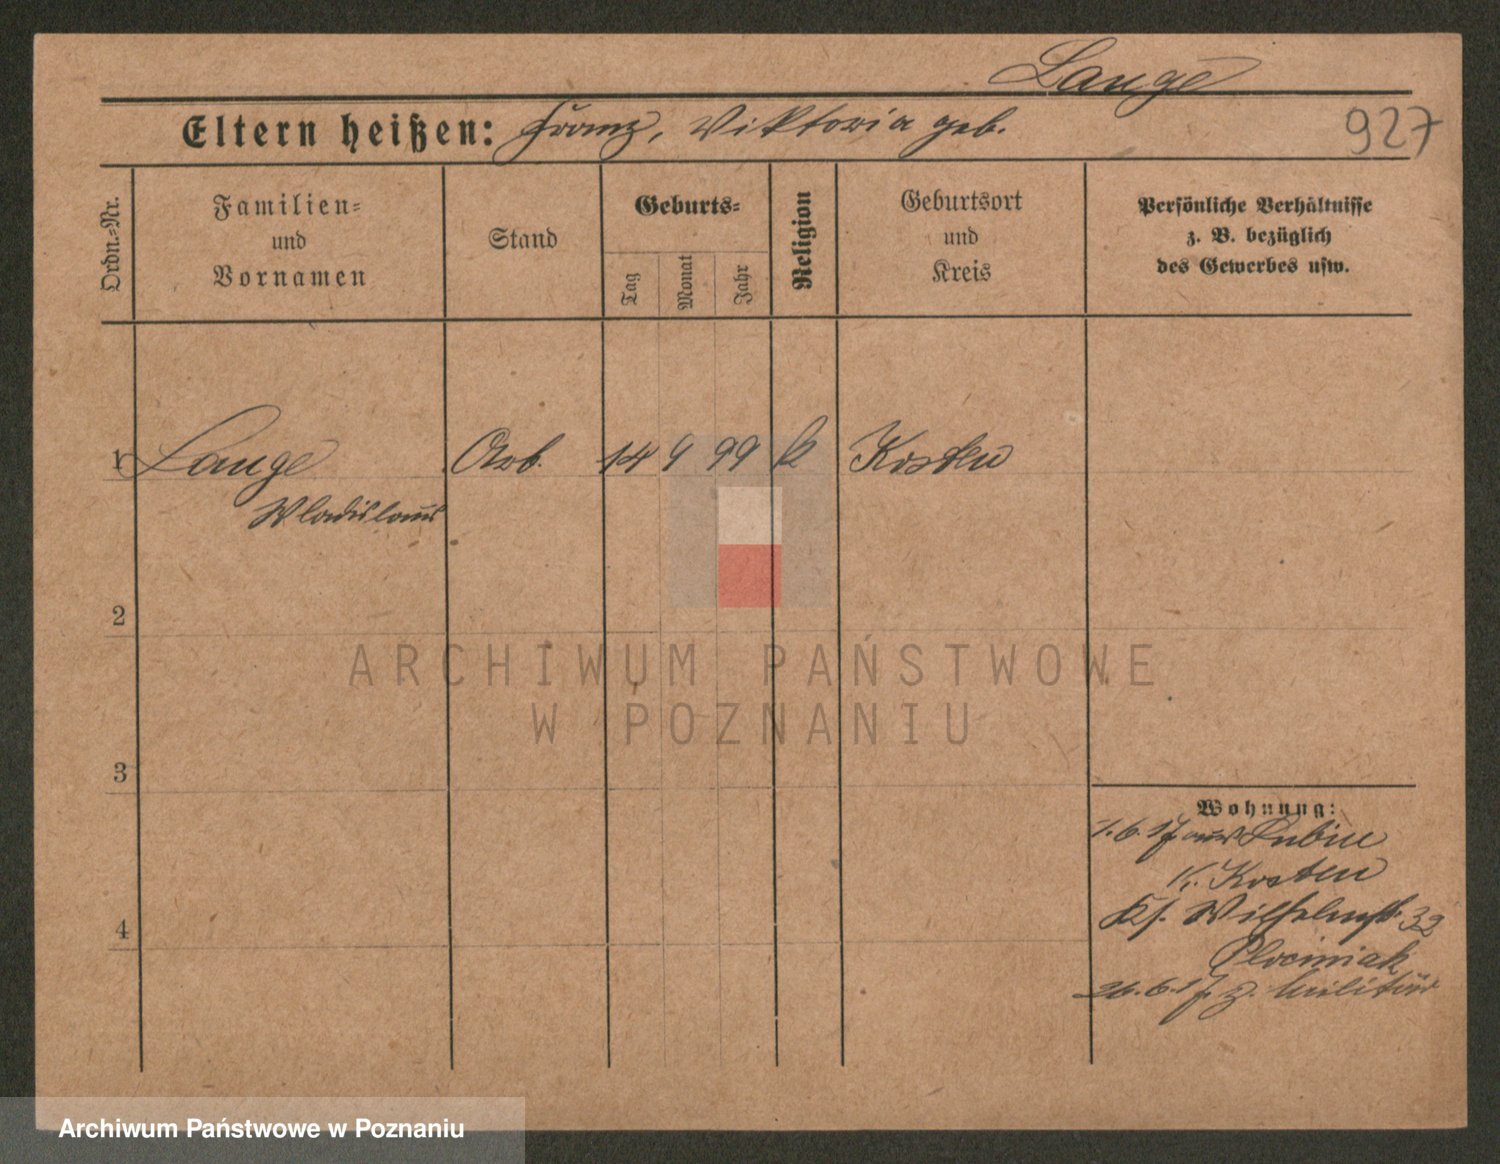 Lange
Eltern heißen: Franz, Viktoria geb.
927
Ordn.=Nr.
Familien=
und
Vornamen
Stand
Geburts=
Tag
Monat
Jahr
Religion
Geburtsort
und
Kreis
Persönliche Verhältnisse
z. B. bezüglich
des Gewerbes usw.
1 Lange Arb. 14 9 99 k Kosten
Wladislaus
2
3
4
Wohnung:
1.6.17 aus
K. Kosten
Wilhelmst. 32
Plociniak
26.6.17 z. Militär
ARCHIWUM PAŃSTWOWE
W POZNANIU
Archiwum Państwowe w Poznaniu